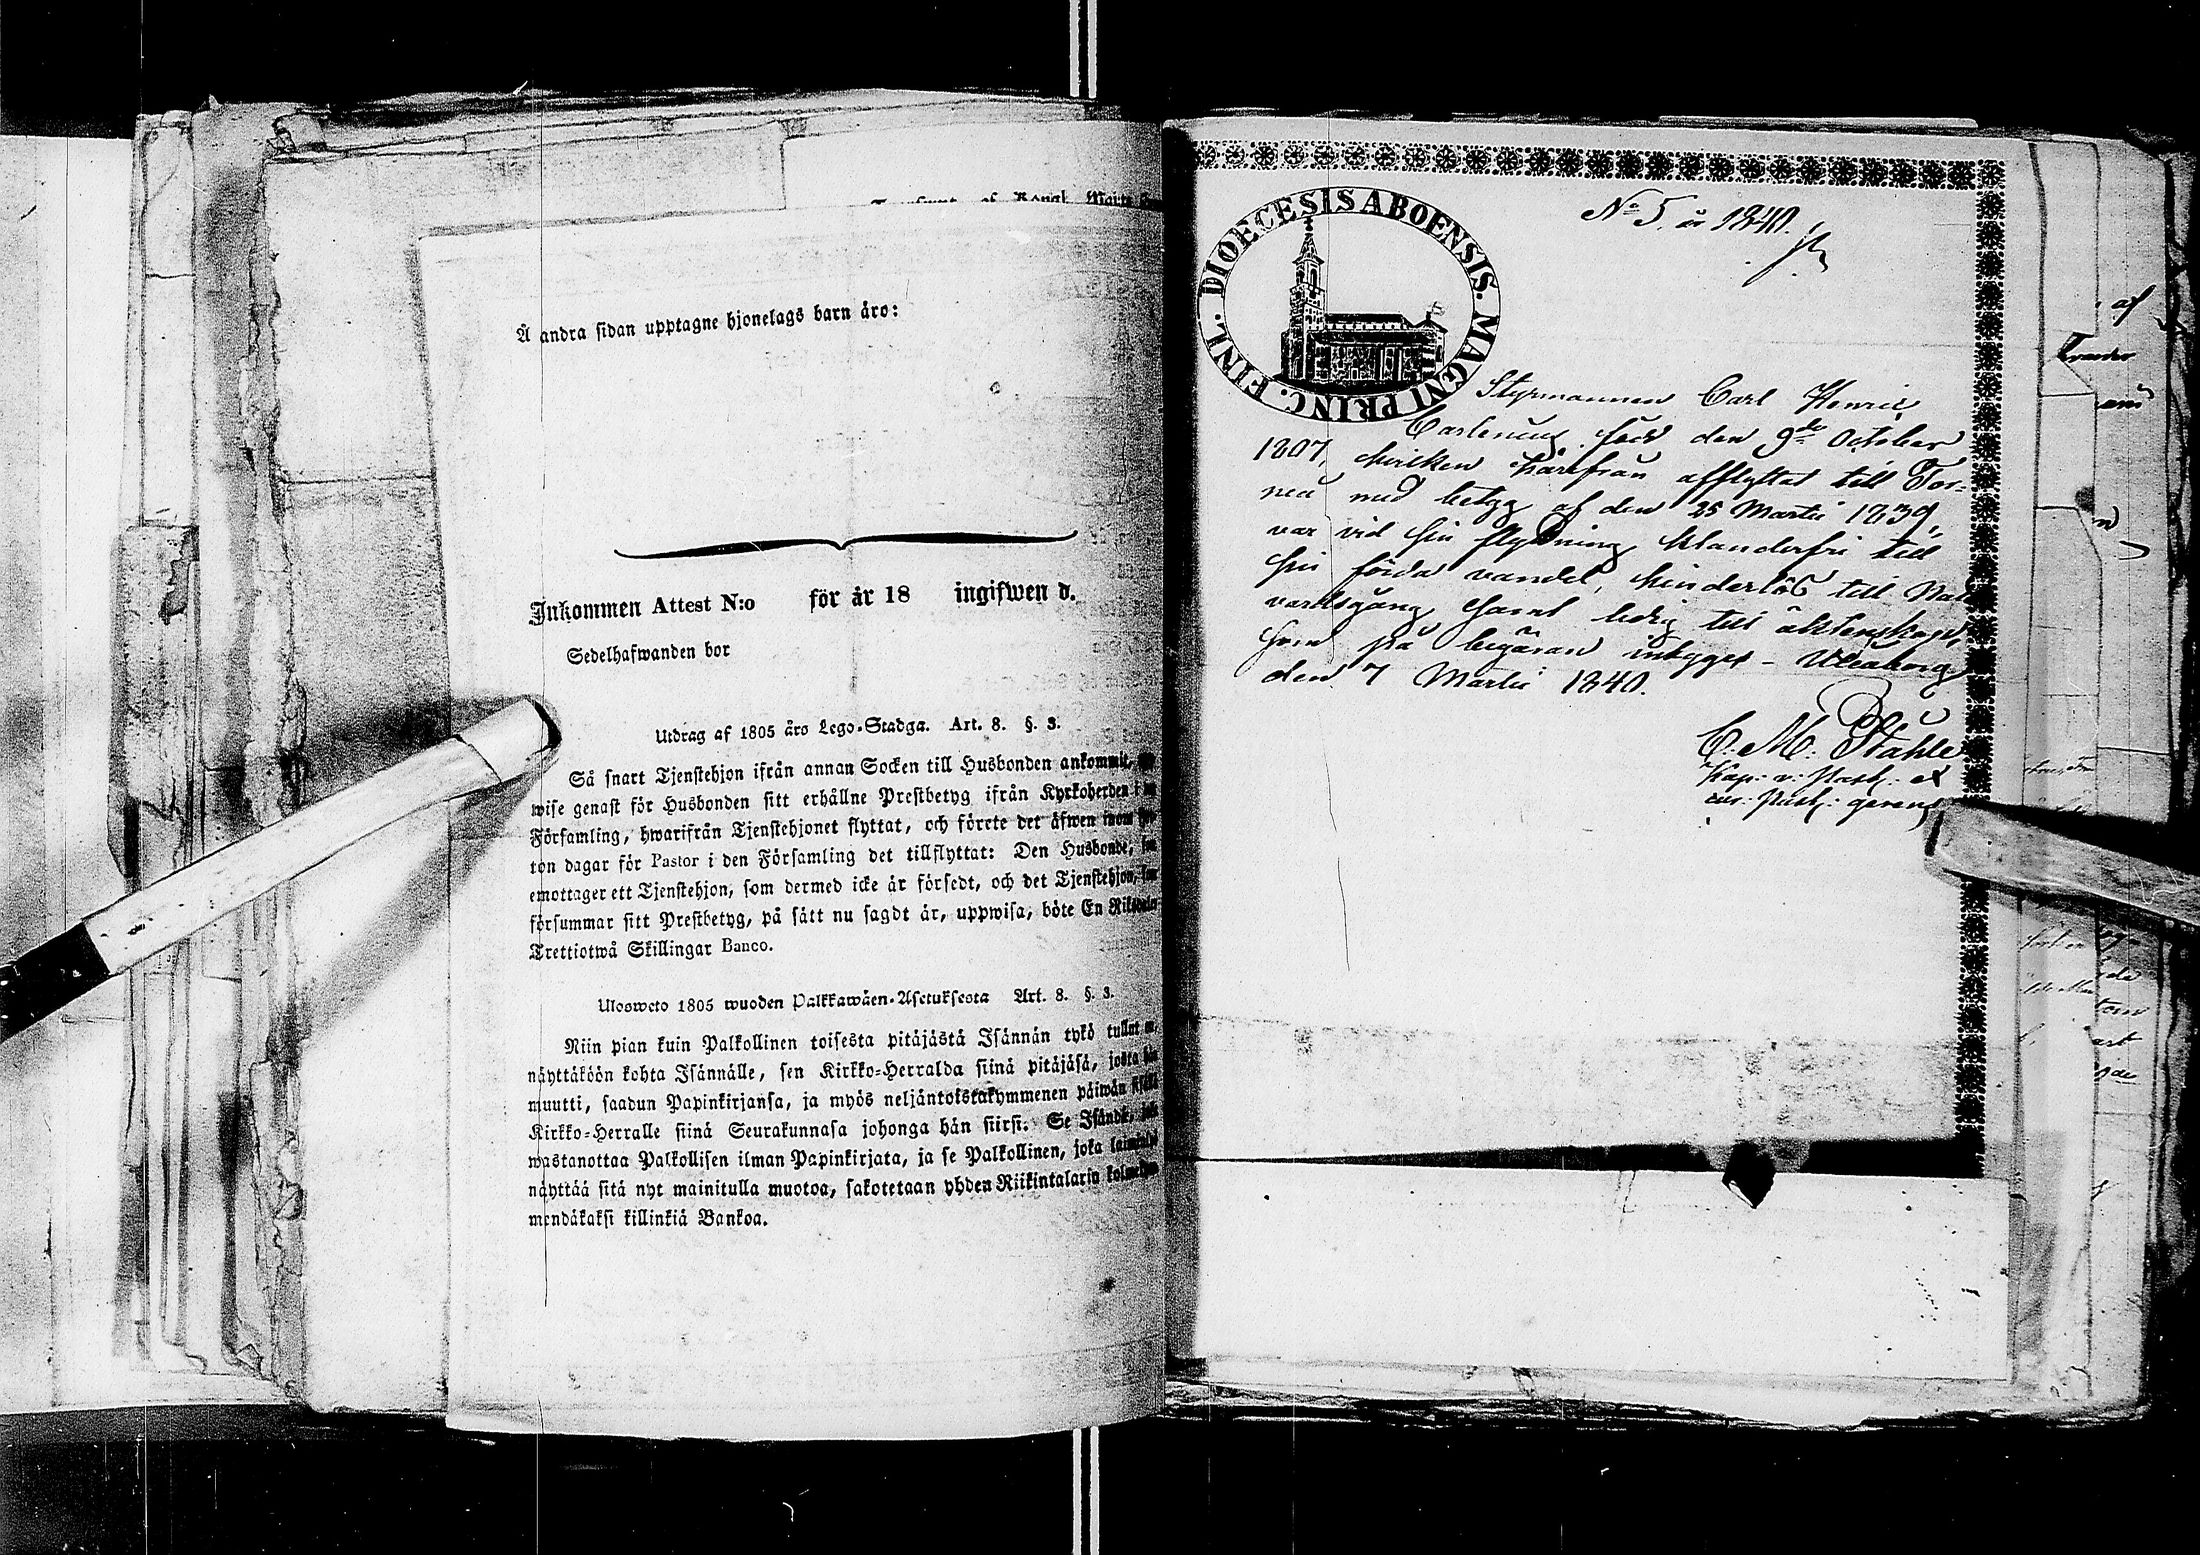 Å andra sidan upptagne hjonelags barn äro:
Inkommen Attest N:o för år 18 ingifwen d.
Sedelhafwanden bor
Utdrag af 1805 års Lego-Stadga. Art. 8. §. 3.
Så snart Tjenstehjon ifrån annan Socken till Husbonden ankommit,
wise genast för Husbonden sitt erhållne Prestbetyg ifrån Kyrkoherden i
Församling, hwarifrån Tjenstehjonet flyttat, och förete det äfwen inom
ton dagar för Pastor i den Församling det tillflyttat: Den Husbonde,
emottager ett Tjenstehjon, som dermed icke är försedt, och det Tjenstehjon,
försummar sitt Prestbetyg, på sätt nu sagdt är, uppwisa, böte En
Trettiotwå Skillingar Banco.
Ulosweto 1805 wuoden Palkkawäen-Asetuksesta Art. 8. §. 3.
Niin pian kuin Palkollinen toisesta pitäjästä Isännän tykö tullut
näyttäköön kohta Isännälle, sen Kirkko-Herralda siinä pitäjäsä, josta
muutti, saadun Papinkirjansa, ja myös neljäntoistakymmenen päiwän
Kirkko-Herralle siinä Seurakunnasa johonga hän siirsi: Se Isändä,
wastanottaa Palkollisen ilman Papinkirjata, ja se Palkollinen, joka
näyttää sitä nyt mainitulla muotoa, sakotetaan yhden Riikintalarin
mendäkaksi killinkiä Bankoa.
DIOECESIS ABOENSIS. MAGNI PRINC. FINL.
No 5. år 1840.
Styrmannen Carl Henric
Castenius född den 9de October
1807, hvilken härifrån afflyttat till Tor=
neå med betyg af den 25 Martii 1839,
var vid sin flyttning klanderfri till
sin förda vandel, hinderlös till Natt=
vardsgång samt ledig till äktenskap,
som på begäran intygges - Uleåborg
den 7 Martii 1840.
C. M. Ståhle
Kap: v: Past: et
cur: Past: gerens